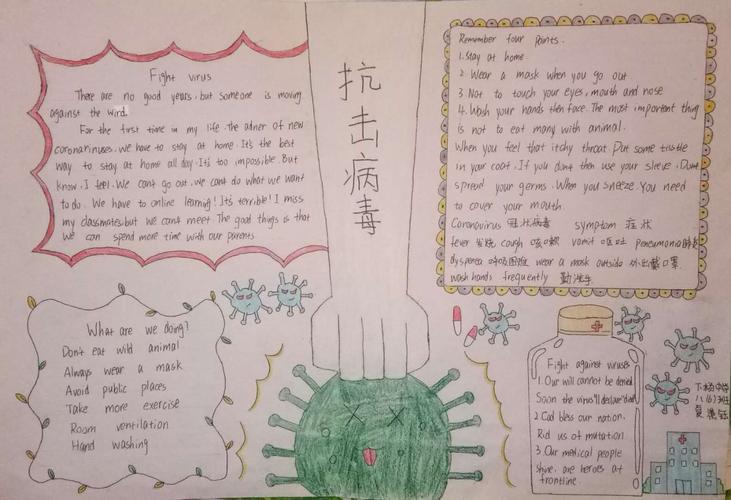 Fight virus
There are no good years, but someone is moving
against the wird.
For the first time in my life. The adner of new
coronaviruses. we have to stay at home. It's the best
way to stay at home all day. It's too impossible. But
know. I feel. We can't go out. we cant do what we want
to do. We have to online learning! It's terrible! I miss
my classmates but we can't meet. The good things is that
we can spend more time with our parents
抗击病毒
Remember four points.
1. Stay at home
2. Wear a mask when you go out
3. Not to touch your eyes, mouth and nose
4. Wash your hands then face. The most important thing
is not to eat many with animal.
When you feel that itchy throat. Put some tisstle
in your coat. If you dont then use your sleeve. Dont
spread your germs. When you sneeze. You need
to cover your mouth.
Coronavirus 冠状病毒 symptom 症状
fever 发烧 cough 咳嗽 vomit 呕吐 pneumonia 肺炎
dyspnea 呼吸困难 wear a mask outside 外出戴口罩
wash hands frequently 勤洗手
What are we doing?
Don't eat wild animal
Always wear a mask
Avoid public places
Take more exercise
Room ventilation
Hand washing
Fight against viruses
1. Our will cannot be denied
Soon the virus'll declare dead
2. God bless our nation.
Rid us of mutation.
3. Our medical people
shine. are heroes at
frontline.
八(6)班